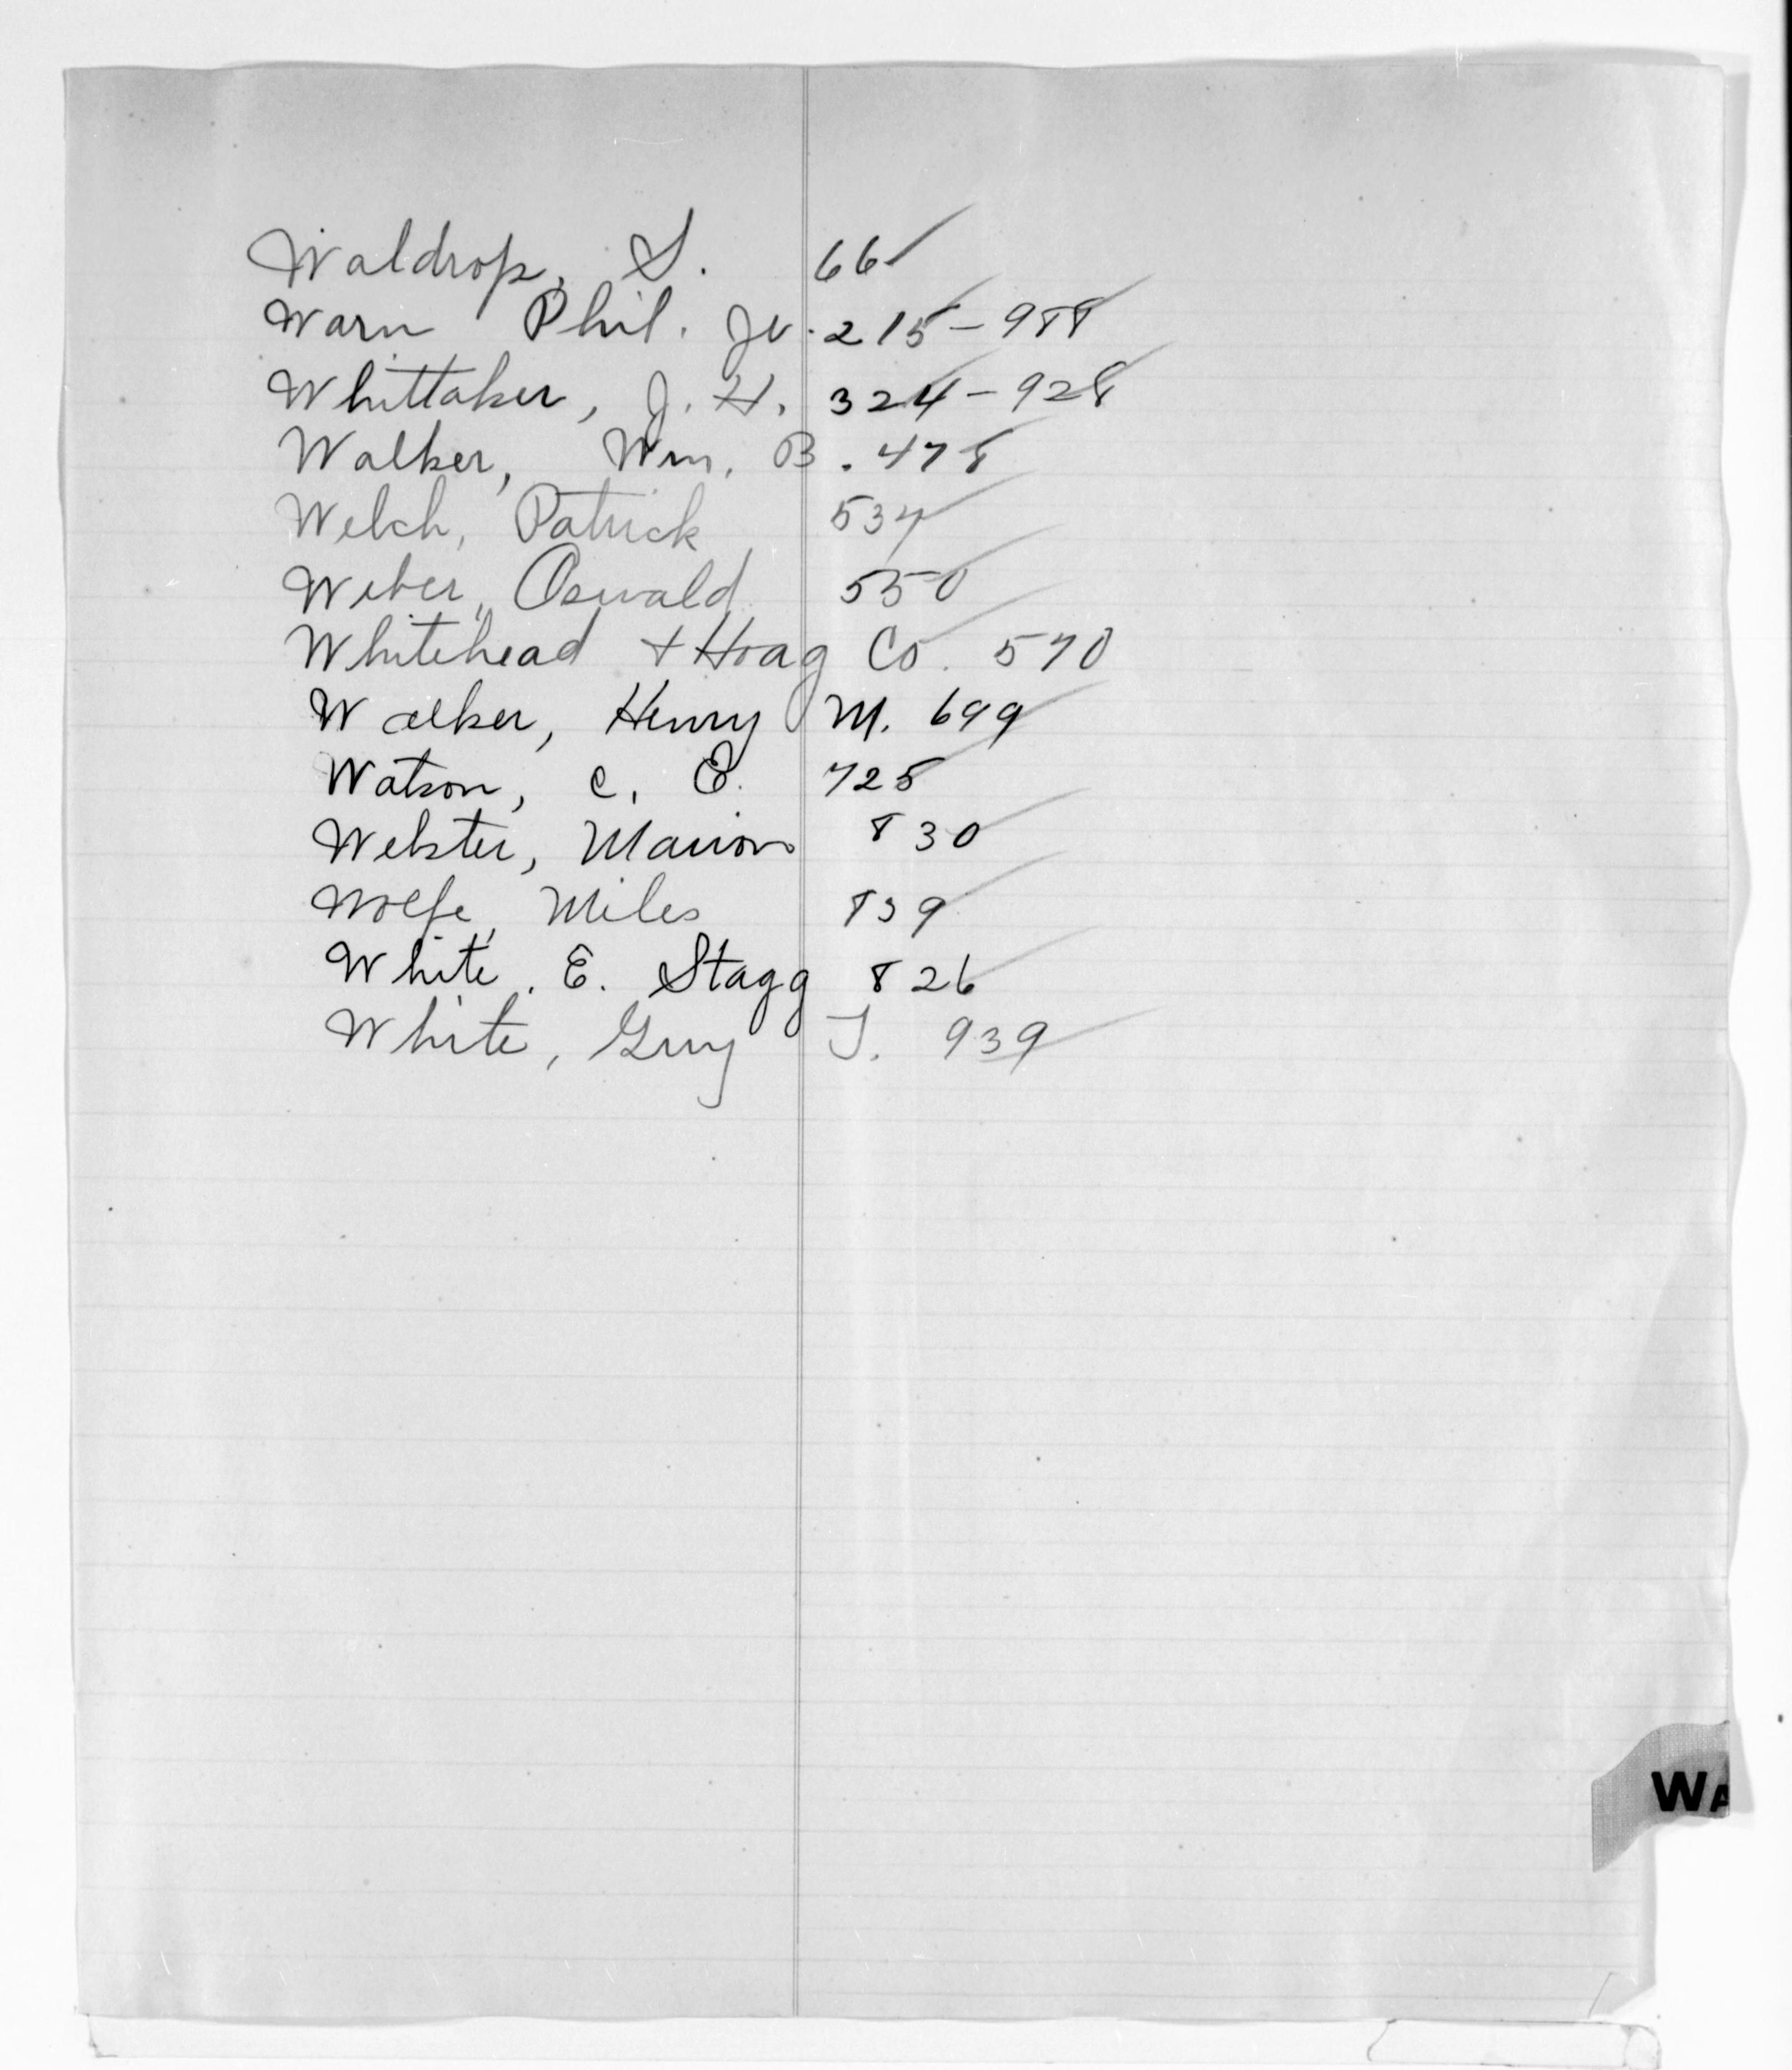 Waldrop, S. 66
Warn Phil. Jr. 215 - 988
Whittaker, J. H. 324 - 928
Walker, Wm. B. 478
Welch, Patrick 537
Weber, Oswald 550
Whitehead + Hoag Co. 570
Walker, Henry M. 699
Watson, C. E. 725
Webster, Marion 830
Wolfe, Miles 839
White, E. Stagg 826
White, Guy T. 939
WA